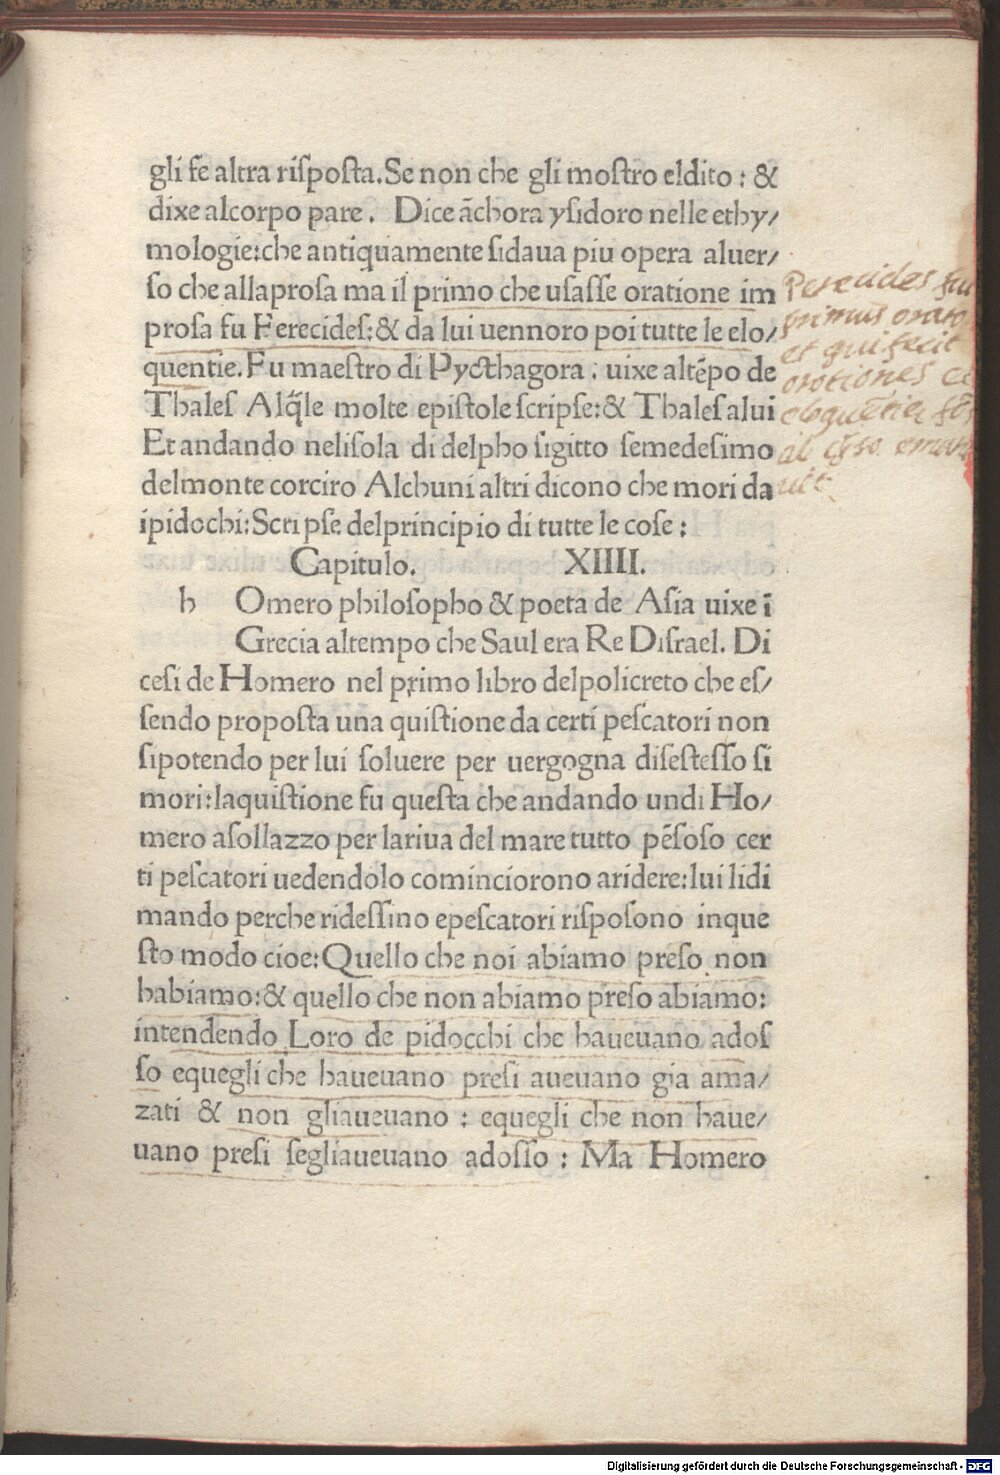 gli fe altra riſpoſta.Se non che gli moſtro eldito : &
dixe alcorpo pare. Dice āchora yſidoro nelle ethy/
mologie:che antiquamente ſidaua piu opera aluer/
ſo che allaproſa ma il primo che uſaſſe oratione im
proſa fu Ferecideſ:& da lui uennoro poi tutte le elo/
quentie.Fu maeſtro di Pycthagora . uixe altēpo de
Thaleſ Alq̄le molte epiſtole ſcripſe:& Thaleſ alui
Et andando neliſola di delpho ſigitto ſemedeſimo
delmonte corciro Alchuni altri dicono che mori da
ipidochi:Scripſe delprincipio di tutte le coſe :
Capitulo. XIIII.
h Omero philoſopho & poeta de Aſia uixe ī
Grecia altempo che Saul era Re Diſrael. Di
ceſi de Homero nel primo libro delpolicreto che eſ/
ſendo propoſta una quiſtione da certi peſcatori non
ſipotendo per lui ſoluere per uergogna diſeſteſſo ſi
mori:laquiſtione fu queſta che andando undi Ho/
mero aſollazzo per lariua del mare tutto pēſoſo cer
ti peſcatori uedendolo cominciorono aridere:lui lidi
mando perche rideſſino epeſcatori riſpoſono inque
ſto modo cioe:Quello che noi abiamo preſo non
habiamo:& quello che non abiamo preſo abiamo:
intendendo Loro de pidocchi che haueuano adoſ
ſo equegli che haueuano preſi aueuano gia ama/
zati & non gliaueuano : equegli che non haue/
uano preſi ſegliaueuano adoſſo : Ma Homero
Perecides fui
primus orato
et qui fecit
orationes
Digitalisierung gefördert durch die Deutsche Forschungsgemeinschaft - DFG